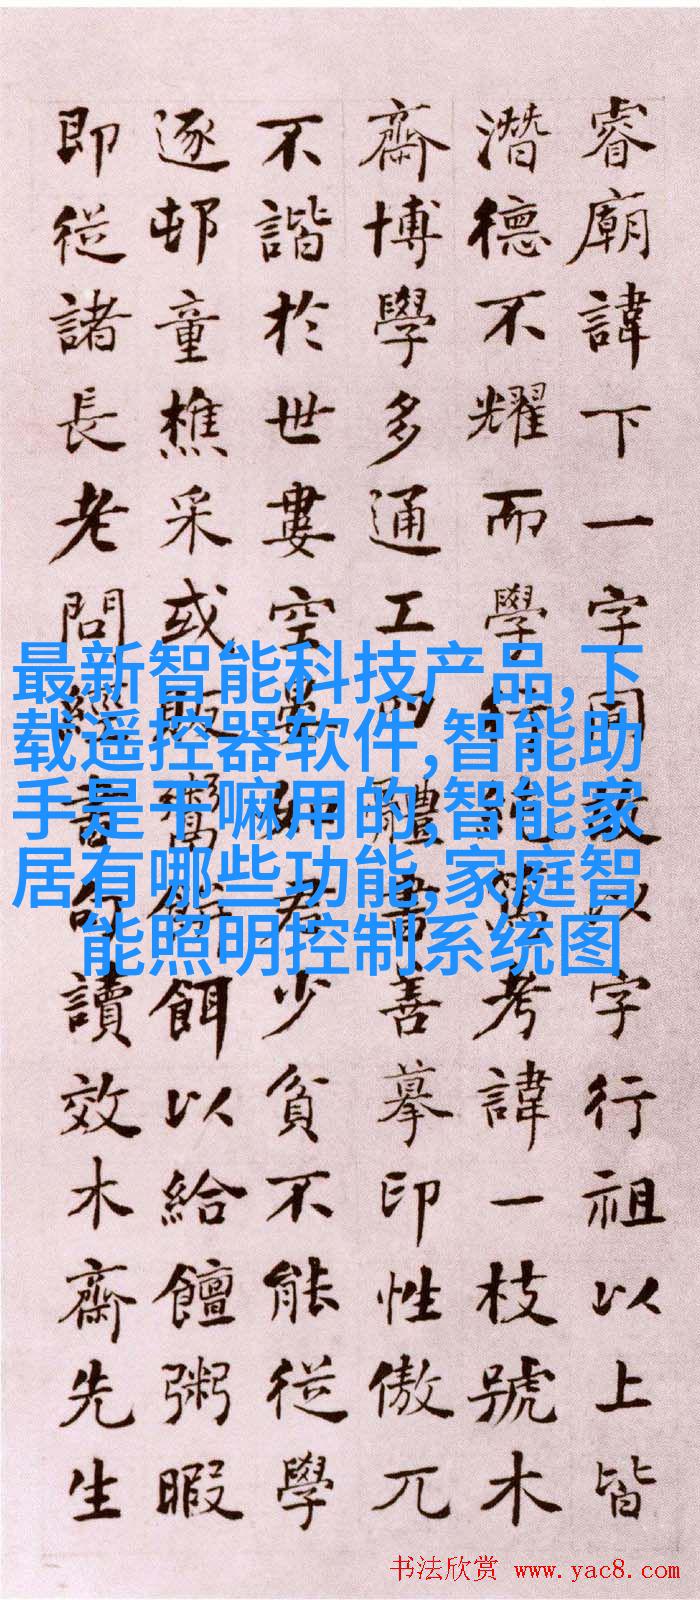 睿廟諱下一字因改以字行祖以上皆
潛德不耀而學行純考諱一枝號木
齋博學多通工體書善摹印性傲兀
不諧於世婁空晏如君少貧不能從學
逐邨童樵采或販鬻餅餌以給饘粥暇
即從諸長老問經書句讀效木齋先生
最新智能科技产品,下
载遥控器软件,智能助
手是干嘛用的,智能家
居有哪些功能,家庭智
能照明控制系统图
书法欣赏 www.yac8.com